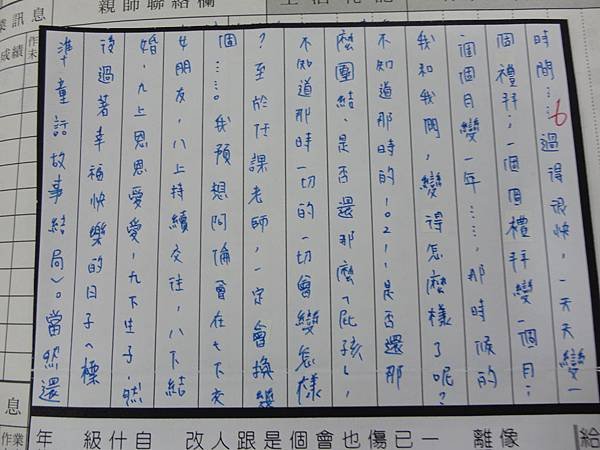 親師聯絡欄
時間……過得很快，一天天變一
6
個禮拜；一個個禮拜變一個月；
一個個月變一年……，那時候的
我和我們，變得怎麼樣了呢？
不知道那時的1021，是否還那
麼團結、是否還那麼「屁孩」，
不知道那時一切的一切會變怎樣
？至於任課老師，一定會換幾
個……。我預想阿倫會在七下交
女朋友，八上持續交往，八下結
婚，九上恩恩愛愛，九下生子，然
後過著幸福快樂的日子（標
準童話故事結局）。當然還
業訊息
成績
息
作業
年 級什自 改人跟是個會也傷已一 離像
給